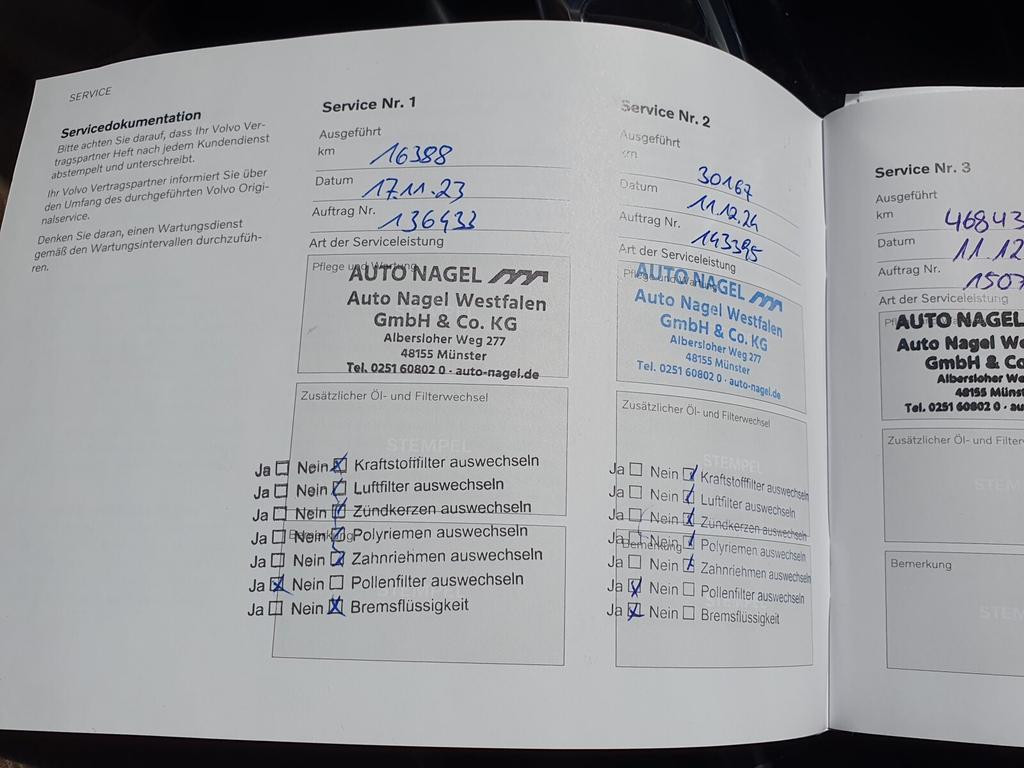 SERVICE
Servicedokumentation
Bitte achten Sie darauf, dass Ihr Volvo Ver-
tragspartner Heft nach jedem Kundendienst
abstempelt und unterschreibt.
Ihr Volvo Vertragspartner informiert Sie über
den Umfang des durchgeführten Volvo Origi-
nalservice.
Denken Sie daran, einen Wartungsdienst
gemäß den Wartungsintervallen durchzufüh-
ren.
Service Nr. 1
Ausgeführt
km 16388
Datum 17.11.23
Auftrag Nr. 136433
Art der Serviceleistung
Pflege und Wartung
AUTO NAGEL
Auto Nagel Westfalen
GmbH & Co. KG
Albersloher Weg 277
48155 Münster
Tel. 0251 60802 0 · auto-nagel.de
Zusätzlicher Öl- und Filterwechsel
STEMPEL
Ja Nein Kraftstofffilter auswechseln
Ja Nein Luftfilter auswechseln
Ja Nein Zündkerzen auswechseln
Bemerkung
Ja Nein Polyriemen auswechseln
Ja Nein Zahnriehmen auswechseln
Ja Nein Pollenfilter auswechseln
STEMPEL
Ja Nein Bremsflüssigkeit
Service Nr. 2
Ausgeführt
km 30167
Datum 11.12.24
Auftrag Nr. 143395
Art der Serviceleistung
Pflege und Wartung
AUTO NAGEL
Auto Nagel Westfalen
GmbH & Co. KG
Albersloher Weg 277
48155 Münster
Tel. 0251 60802 0 · auto-nagel.de
Zusätzlicher Öl- und Filterwechsel
STEMPEL
Ja Nein Kraftstofffilter auswechseln
Ja Nein Luftfilter auswechseln
Ja Nein Zündkerzen auswechseln
Bemerkung
Ja Nein Polyriemen auswechseln
Ja Nein Zahnriehmen auswechseln
Ja Nein Pollenfilter auswechseln
STEMPEL
Ja Nein Bremsflüssigkeit
Service Nr. 3
Ausgeführt
km 46843
Datum 11.12
Auftrag Nr. 1507
Art der Serviceleistung
AUTO NAGEL
Auto Nagel We
GmbH & Co
Albersloher We
48155 Münst
Tel. 0251 60802 0 · au
Zusätzlicher Öl- und Filter
STEM
Bemerkung
STEM